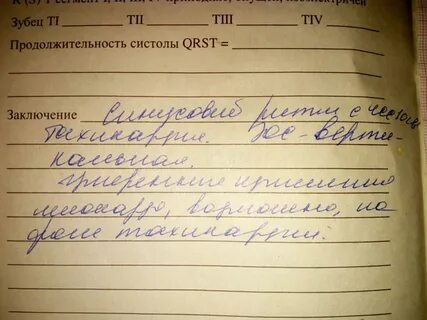 R (S) T сегмент I, II, III, IV приподнят, опущен, изоэлектричен
Зубец TI TII TIII TIV
Продолжительность систолы QRST =
Заключение Синусовый ритм с час
тахикардия. Эос - верти-
кальная.
Умеренные изменения
миокарда, возможно, на
фоне тахикардии.